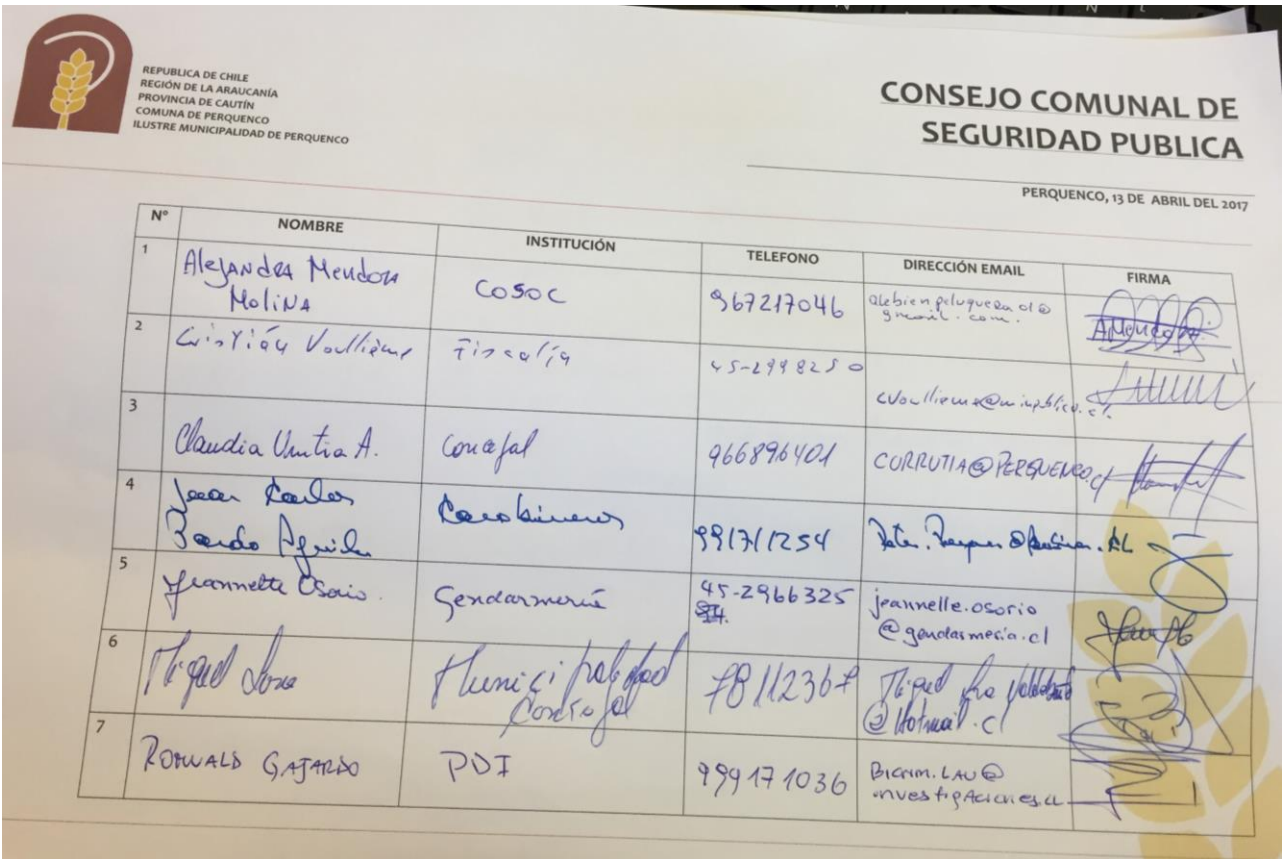 REPUBLICA DE CHILE
REGIÓN DE LA ARAUCANÍA
PROVINCIA DE CAUTÍN
COMUNA DE PERQUENCO
ILUSTRE MUNICIPALIDAD DE PERQUENCO
CONSEJO COMUNAL DE
SEGURIDAD PUBLICA
PERQUENCO, 13 DE ABRIL DEL 2017
N° NOMBRE INSTITUCIÓN TELEFONO DIRECCIÓN EMAIL FIRMA
1 Alejandra Mendoza
Molina
COSOC
967217046
alebienpeluquera.01@
gmail.com.
2 Cristián Voullième Fiscalía
45-2998250
cvoullieme@minpublico.cl.
3
Claudia Urrutia A. Concejal 966896401 CURRUTIA@PERQUENCO.cl
4 Juan Carlos
Pardo Aguila
Carabineros
991711254
5 Jeannette Osorio. Gendarmería
45-2966325
jeannelle.osorio
@gendarmeria.cl
6 Miguel
Municipalidad
Concejal
78112367
Miguel
@Hotmail.cl
7
Romuald Gajardo PDI 999171036
Bicrim.LAU@
investigaciones.cl